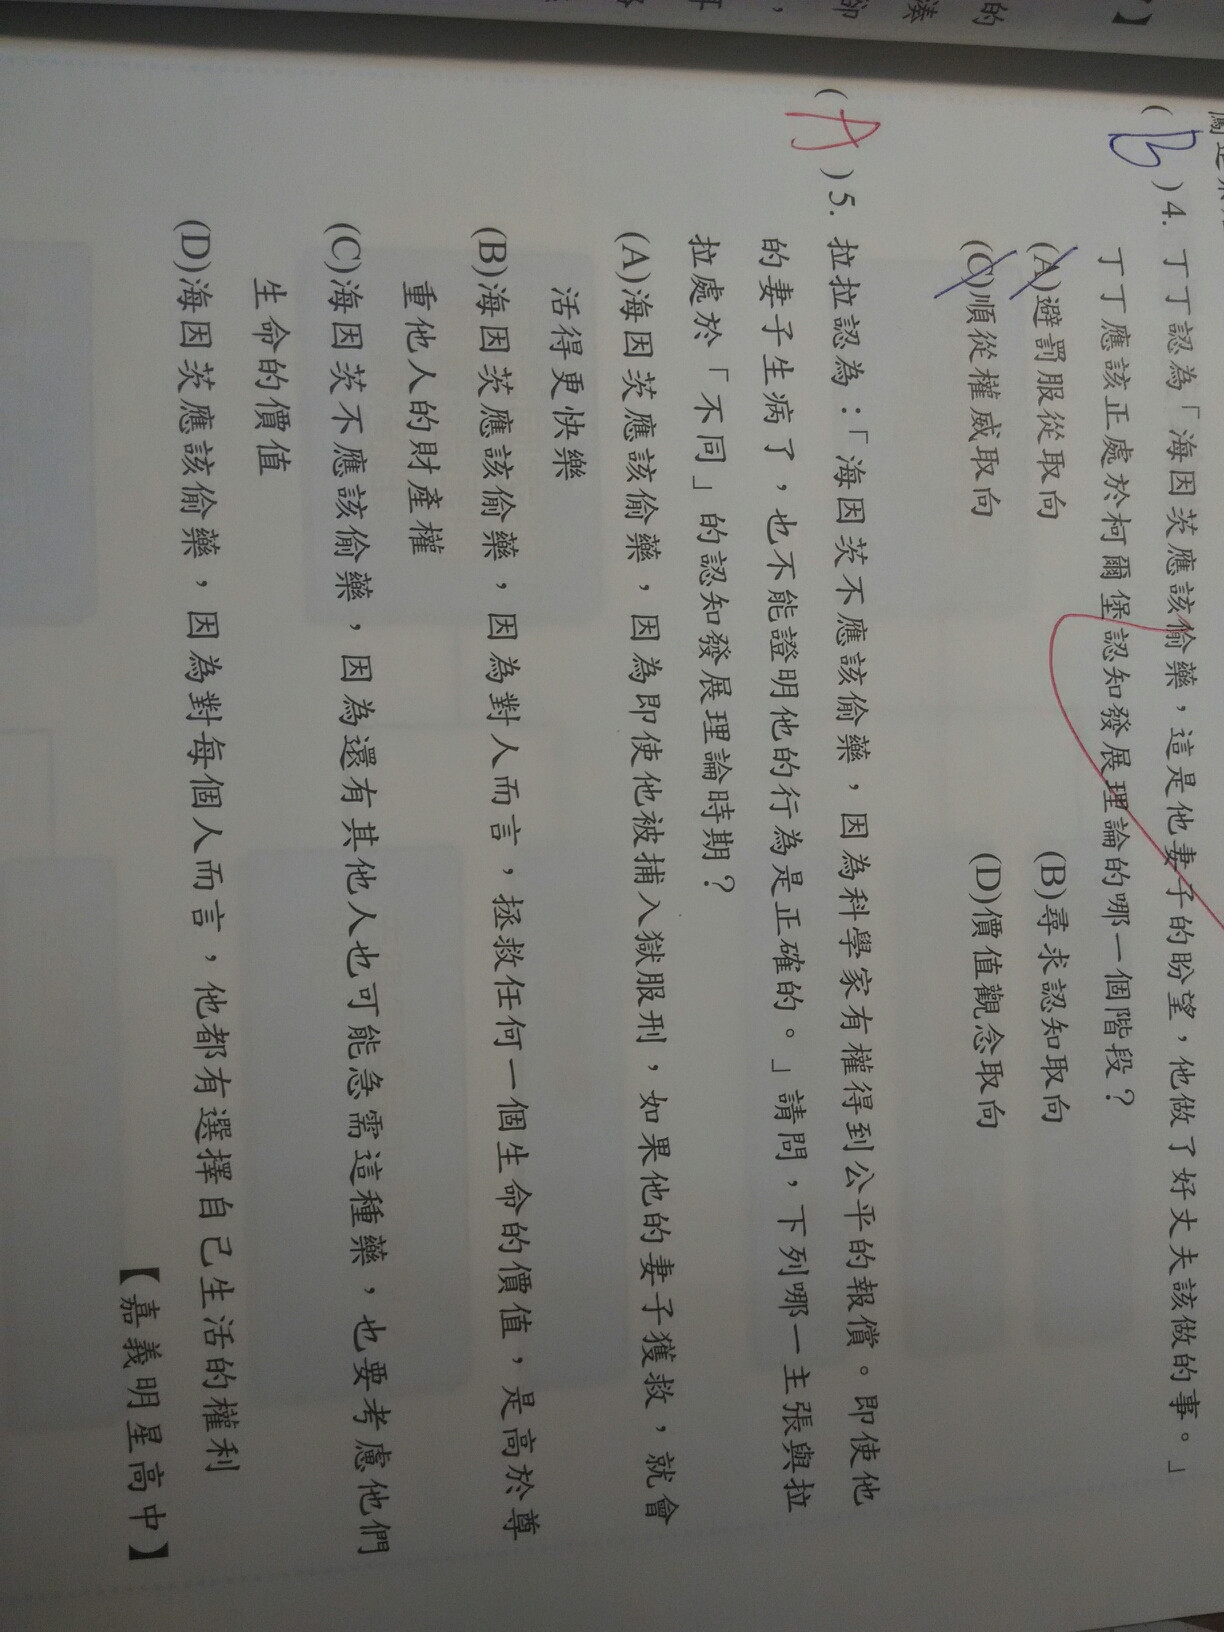 】
的
(B)4. 丁丁認為「海因茨應該偷藥，這是他妻子的盼望，他做了好丈夫該做的事。」
丁丁應該正處於柯爾堡認知發展理論的哪一個階段？
(A)避罰服從取向 (B)尋求認知取向
(C)順從權威取向 (D)價值觀念取向
(A)5. 拉拉認為：「海因茨不應該偷藥，因為科學家有權得到公平的報償。即使他
的妻子生病了，也不能證明他的行為是正確的。」請問，下列哪一主張與拉
拉處於「不同」的認知發展理論時期？
(A)海因茨應該偷藥，因為即使他被捕入獄服刑，如果他的妻子獲救，就會
活得更快樂
(B)海因茨應該偷藥，因為對人而言，拯救任何一個生命的價值，是高於尊
重他人的財產權
(C)海因茨不應該偷藥，因為還有其他人也可能急需這種藥，也要考慮他們
生命的價值
(D)海因茨應該偷藥，因為對每個人而言，他都有選擇自己生活的權利
【嘉義明星高中】